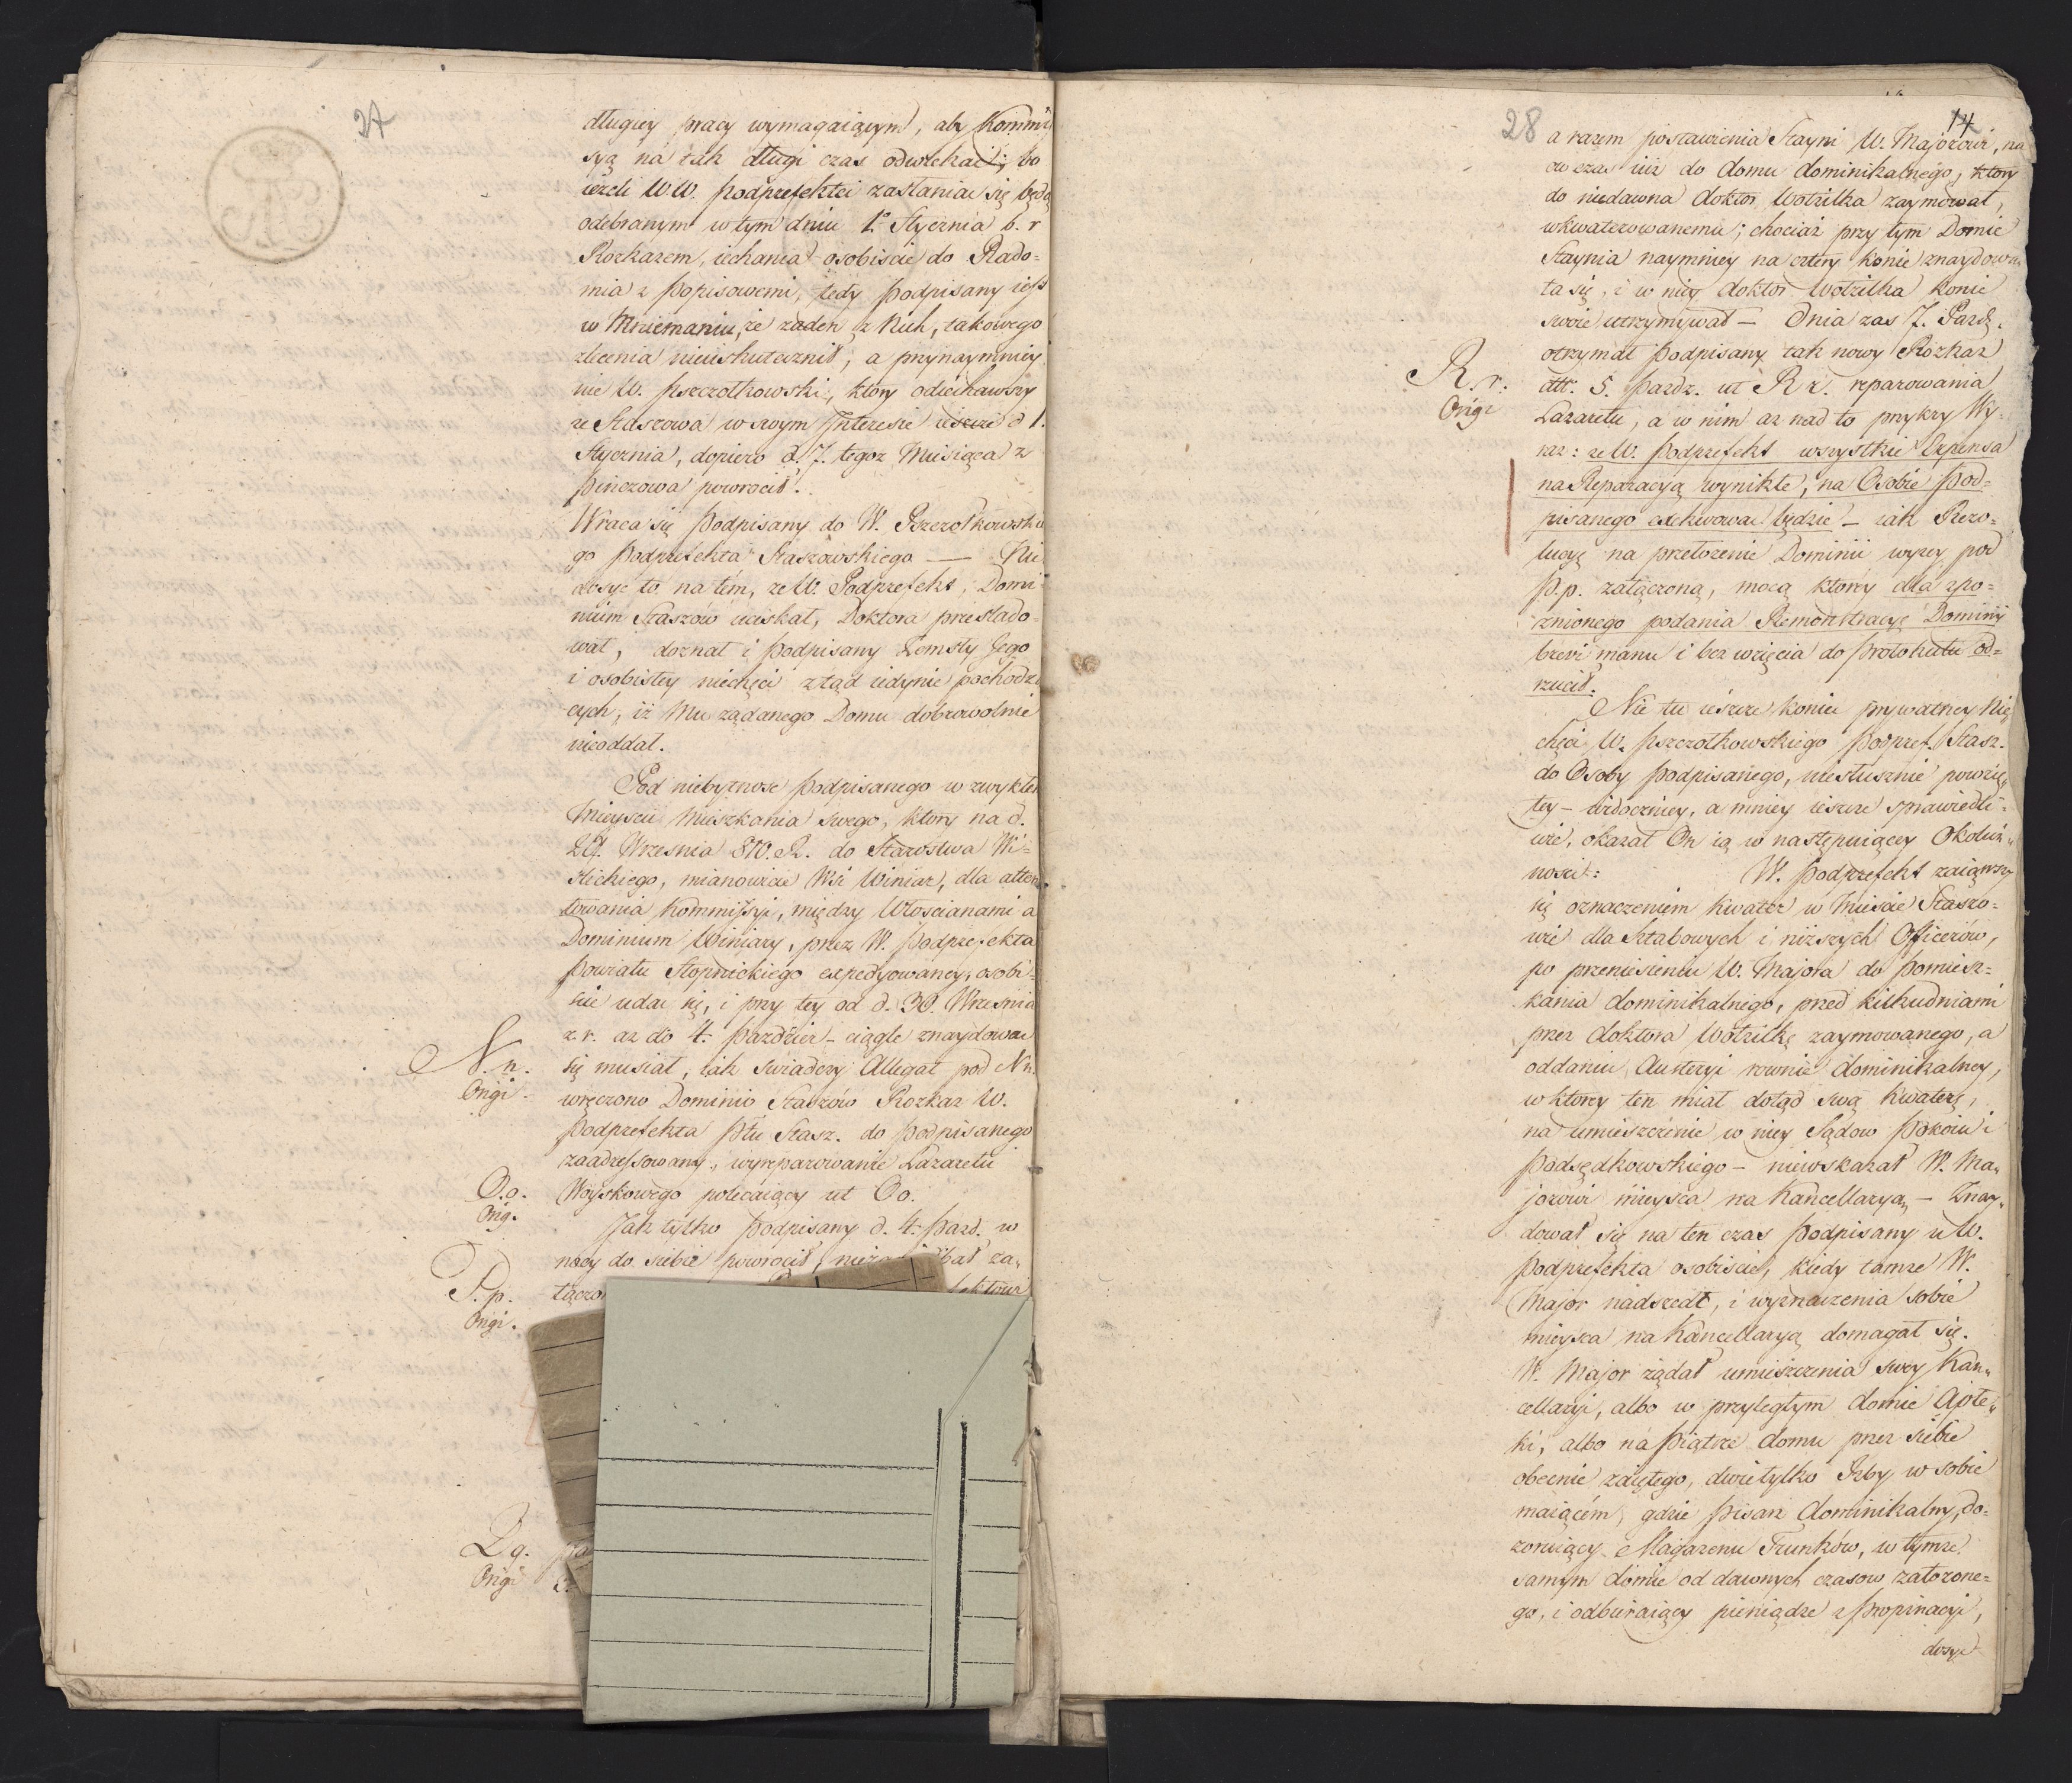 27
długiey pracy wymagaiącym, aby Kommis
syą na tak długi czas odwlekać; bo
ieżeli WW. Podprefekci zasłaniac się będą
odebranym w tym dniu 1o Stycznia b. r
Rozkazem, iechania osobiscie do Rado=
mia z Popisowemi, tedy Podpisany iest
w Mniemaniu, że zaden z Nich, takowego
zlecenia nieuskutecznił, a przynaymniey
nie W. Pszczołkowski, który odiechawszy
ze Staszowa w swym Interesie ieszcze d 1.
Stycznia, dopiero d. 7. tegoz Miesiąca z
Pinczowa powrocił.
Wraca się Podpisany do W. Pszczołkowskie
go Podprefekta Staszowskiego — Nie
dosyć to na tém, ze W. Podprefekt, Domi
nium Staszów uciskał, Doktora przesłado=
wał, doznał i Podpisany Zemsty Jego
i osobistey niechęci ztąd iedynie pochodzą
cych, iż Mu żądanego Domu dobrowolnie
nieoddał.
Pod niebytnosc Podpisanego w zwykłem
Mieyscu Mieszkania swego, ktory na d.
27. Wrzesnia 810. R. do Starostwa Wi=
slickiego, mianowicie Wsi Winiar, dla atten
towania Kommissyi, między Włoscianami a
Dominium Winiary, przez W. Podprefekta
Powiatu Stopnickiego expedyowaney, osobi=
scie udac się, i przy tey od d. 30. Wrzesnia
z. r. az do 4. Pazdzier. ciągle znaydowac
N. n. się musiał, iak swiadczy Allegat pod Nn.
Origi. wręczono Dominio Staszów Rozkaz W.
Podprefekta Ptu Stasz. do Podpisanego
zaadressowany, wyreparowanie Lazaretu
O.o. Woyskowego polecaiący ut Oo.
Orig.
Jak tylko Podpisany d. 4. Pazd. w
nocy do siebie powrocił, za,
P. p.
Origi.
Qq.
Origi
28
14
a razem postawienia Stayni W. Majorowi, na
ow czas iuż do domu dominikalnego, ktory
do niedawna doktor Wotzilka zaymował,
wkwaterowanemu; chociaż przy tym Domie
Staynia naymniey na cztery konie znaydowa
ła się, i w niey doktor Wotzilka konie
swoie utrzymywał — Dnia zas 7. Pazdz.
otrzymał Podpisany tak nowy Rozkaz
R. r. dtt. 5. Pazdz. ut R r. reparowania
Origi Lazaretu, a w nim az nad to przykry Wy=
raz: ze W. Podprefekt wszystkie Expensa
na Reparacyą wynikłe, na Osobie Pod=
pisanego exekwować będzie — iak Rezo=
lucyę na przełożenie Dominii wyzey pod
P.p. załączoną, mocą ktorey dla spo=
znionego podania Remonstracyę Dominii
brevi manu i bez wzięcia do Protokułu od=
rzucił.
Nie tu ieszcze koniec prywatney Nie
chęci W. Pszczołkowskiego Podpref. Stasz.
do Osoby Podpisanego, niesłusznie powzię,
tey — widoczniey, a mniey ieszcze sprawiedli=
wie, okazał On ią w następuiącey Okolicz,,
nosci: W. Podprefekt zaiąwszy
się oznaczeniem kwater w Miescie Staszo=
wie dla Sztabowych i niższych Officerów,
po przeniesieniu W. Majora do Pomiesz=
kania dominikalnego, przed kilkudniami
przez doktora Wotzilkę zaymowanego, a
oddaniu Austeryi rownie dominikalney,
w ktorey ten miał dotąd swą kwaterę,
na umieszczenie w niey Sądow Pokoiu i
Podsędkowskiego — niewskazał W. Ma,,
jorowi mieysca na Kancellaryą — Znay,,
dował się na ten czas Podpisany u W.
Podprefekta osobiscie, kiedy tamze W.
Major nadszedł, i wyznaczenia sobie
mieysca na Kancellaryą domagał się.
W. Major żądał umieszczenia swey Kan,,
cellaryi, albo w przyległym domie Apte,,
ki, albo na Piątrze domu przez siebie
obecnie zaiętego, dwie tylko Izby w sobie
maiącém, gdzie Pisarz dominikalny, do=
zoruiący Magazenu Trunków, w tymze
samym domie od dawnych czasow założone=
go, i odbieraiący pieniądze z Propinacyi,
dosyć